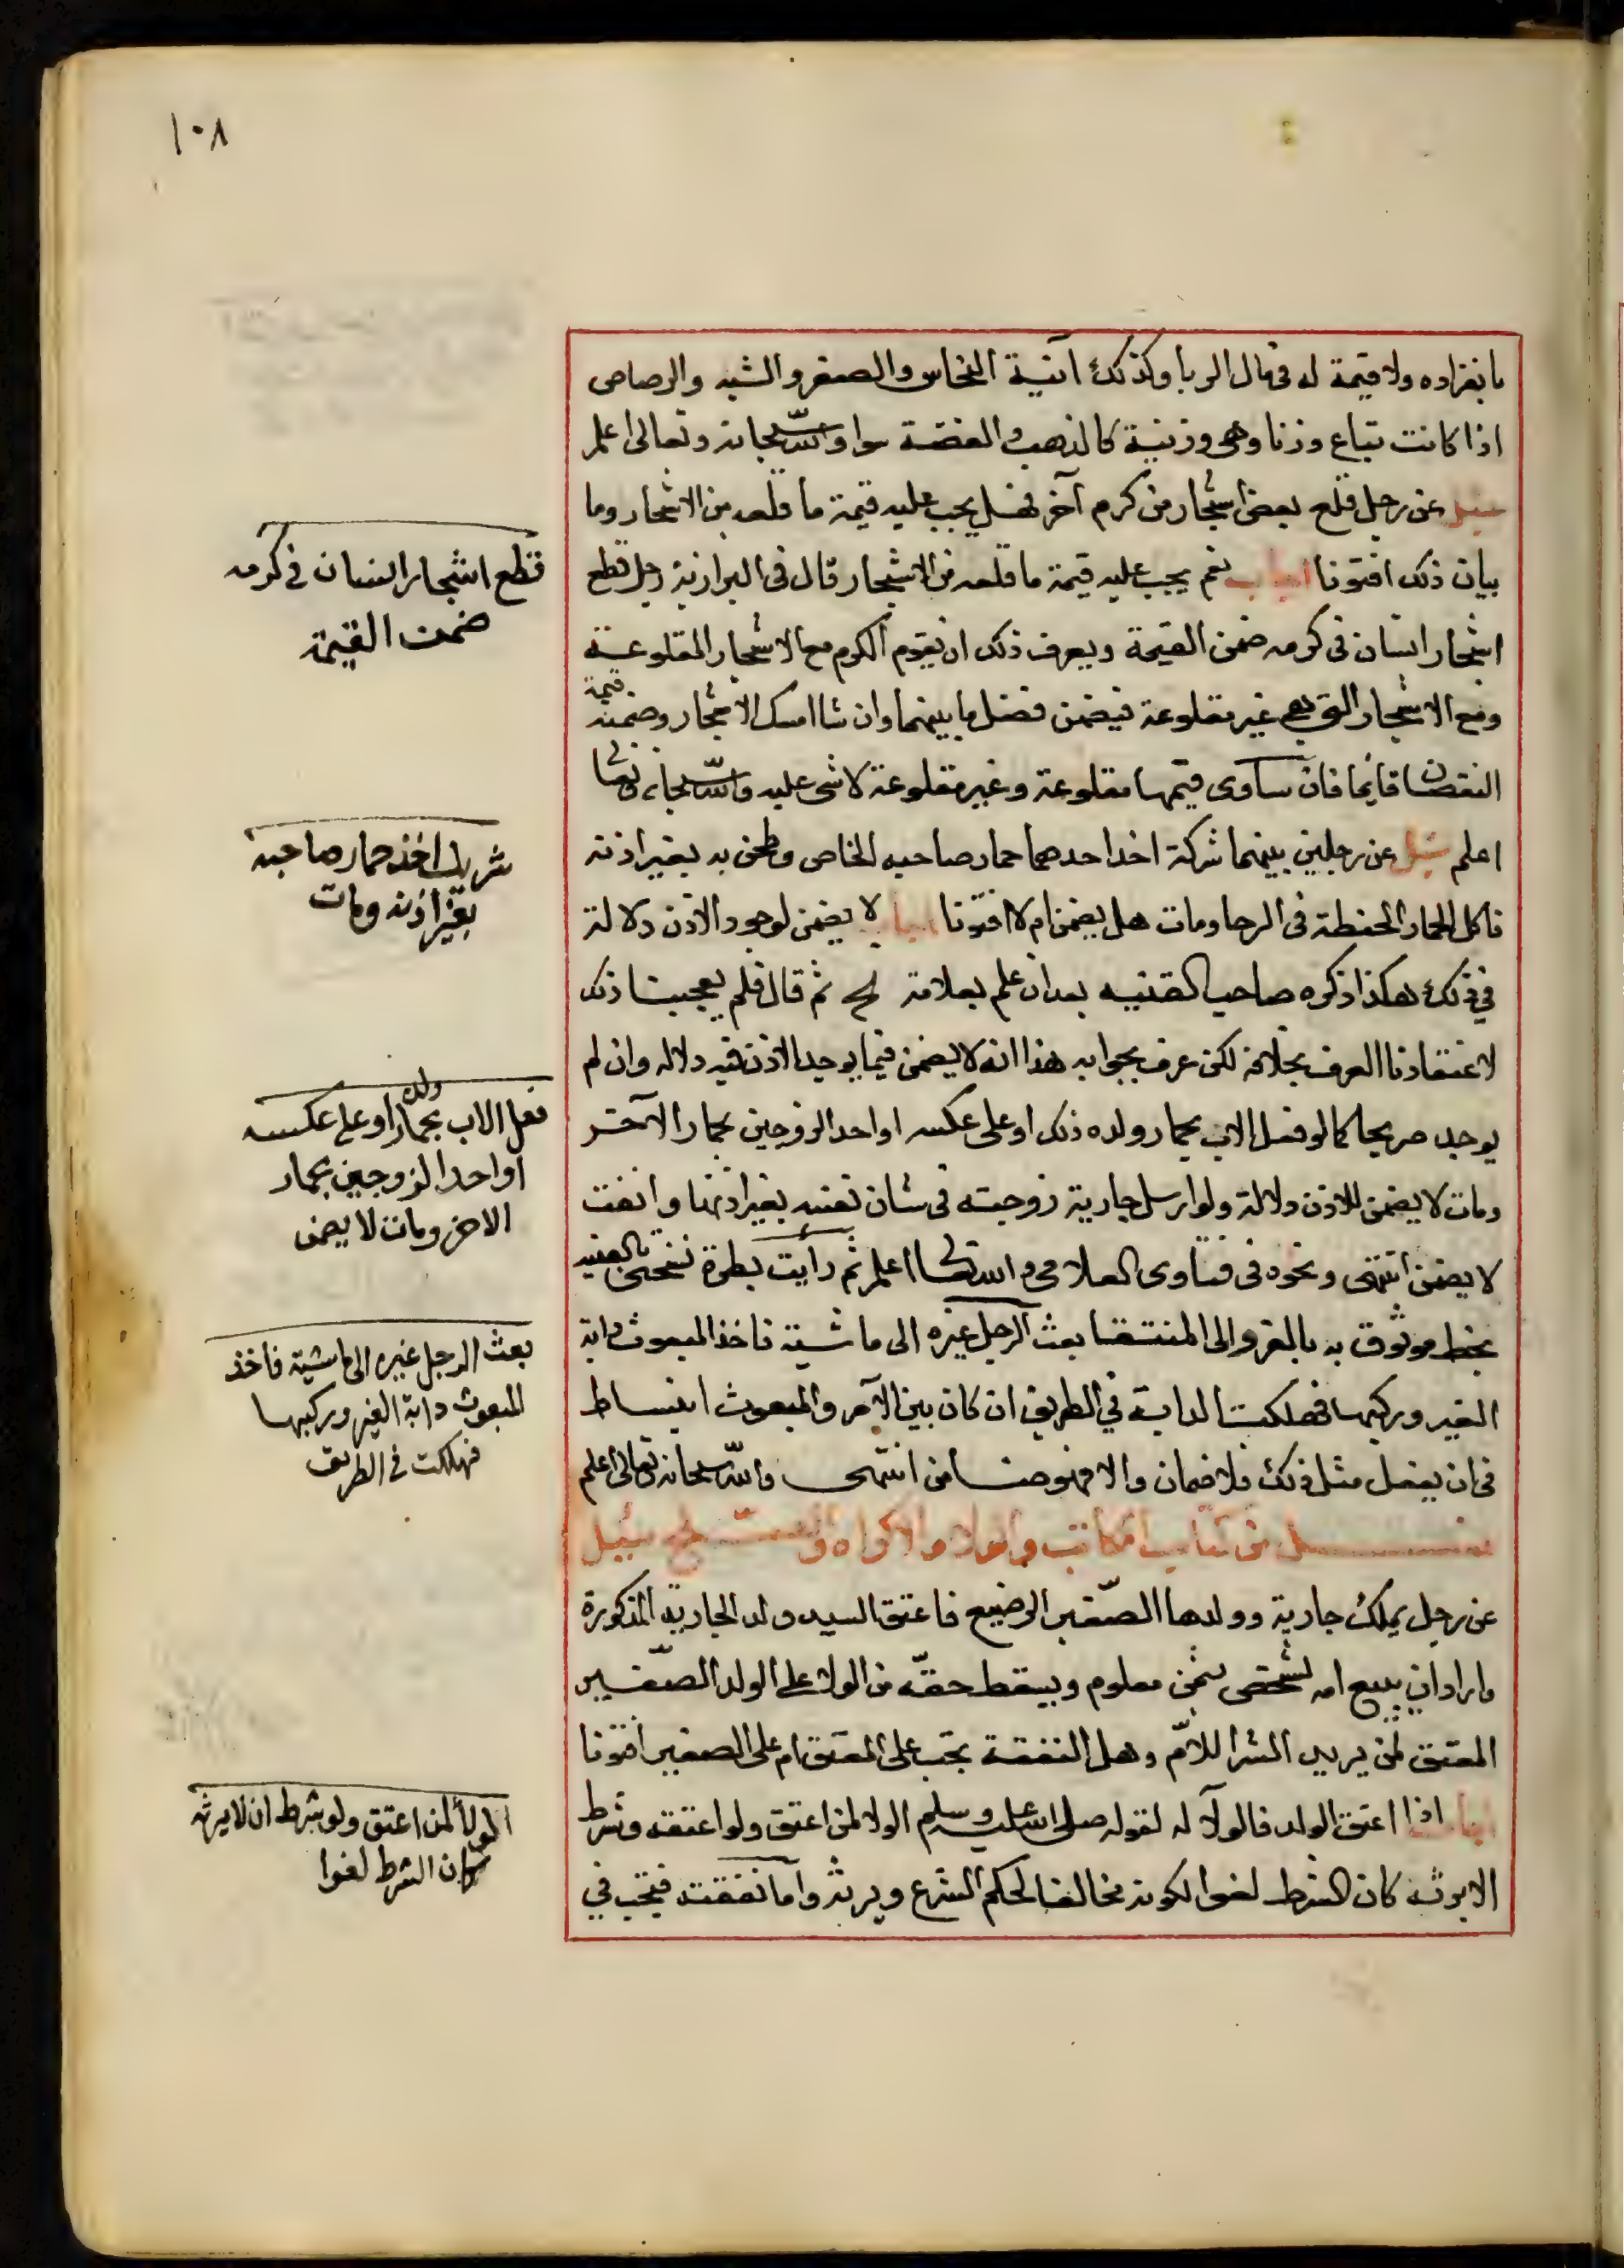 ١٠٨
بانفراده ولا قيمة له في مال الربا وكذلك آنية النحاس والصفر والشبه والرصاص
اذا كانت تباع وزنا وهي وزنية كالذهب والفضة سوا والله سبحانه وتعالى اعلم
سئل عن رجل قلع بعض اشجار من كرم آخر فهل يجب عليه قيمة ما قلعه من الاشجار وما
بيان ذلك افتونا اجاب نعم يجب عليه قيمة ما قلعه من الاشجار قال في البزازية رجل قطع
اشجار انسان في كرمه ضمن القيمة ويعرف ذلك ان يقوم الكرم مع الاشجار المقلوعة
ومع الاشجار التي هي غير مقلوعة فيضمن فضل ما بينهما وان شا امسك الاشجار وضمنه قيمة
النقصان قائما فان ساوى قيمتها مقلوعة وغير مقلوعة لا شي عليه والله سبحانه وتعالى
اعلم سئل عن رجلين بينهما شركة اخذ احدهما حمار صاحبه الخاص وطحن به بغير اذنه
فاكل الحمار الحنطة في الرحا ومات هل يضمن ام لا افتونا اجاب لا يضمن لوجود الاذن دلالة
في ذلك هكذا ذكره صاحب القنيه بعد ان علم بعلامة ثم قال فلم يعجبنا ذلك
لاعتقادنا العرف بخلافه لكن عرف بجوابه هذا انه لا يضمن فيما يوجد الاذن فيه دلاله وان لم
يوجد صريحا كما لو فعل الاب بحمار ولده ذلك او على عكسه او احد الزوجين بحمار الآخر
ومات لا يضمن للاذن دلالة ولو ارسل جارية زوجته في شان نفسه بغير اذنها وابقت
لا يضمن انتهى ونحوه في فتاوى العلامي والله تعالى اعلم ثم رايت بطرة نسختي بالقنيه
بخط موثوق به بالعزو الى المنتقا بعث الرجل غيره الى ماشيته فاخذ المبعوث دابة
الغير وركبها فهلكت الدابة في الطريق ان كان بين الآمر والمبعوث انبساط
في ان يفعل مثل ذلك فلا ضمان والا فهو ضامن انتهى والله سبحانه وتعالى اعلم
فصل من كتاب المكاتب والولا والاكراه سئل
عن رجل يملك جارية وولدها الصغير الرضيع فاعتق السيد ولد الجارية المذكورة
واراد ان يبيع امه لشخص بثمن معلوم ويسقط حقه من الولا على الولد الصغير
المعتق لمن يريد الشرا للام وهل النفقة تجب على المعتق ام على الصغير افتونا
اجاب اذا اعتق الولد فالولآ له لقوله صلى الله عليه وسلم الولا لمن اعتق ولو اعتقه وشرط
الا يرثه كان الشرط لغوا لكونه مخالفا لحكم الشرع ويرثه واما نفقته فتجب في
قطع اشجار انسان في كرمه
ضمن القيمة
شريك اخذ حمار صاحبه
بغير اذنه ومات
فعل الاب بحمار ولده او على عكسه
او احد الزوجين بحمار
الاخر ومات لا يضمن
بعث الرجل غيره الى ماشيته فاخذ
المبعوث دابة الغير وركبها
فهلكت في الطريق
الولا لمن اعتق ولو شرط ان لا يرثه
كان الشرط لغوا